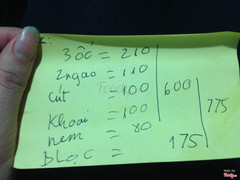 3 ốc = 210
2 ngao = 110
cút = 100
Khoai = 100
nem = 80
BLạc =
600
175
775